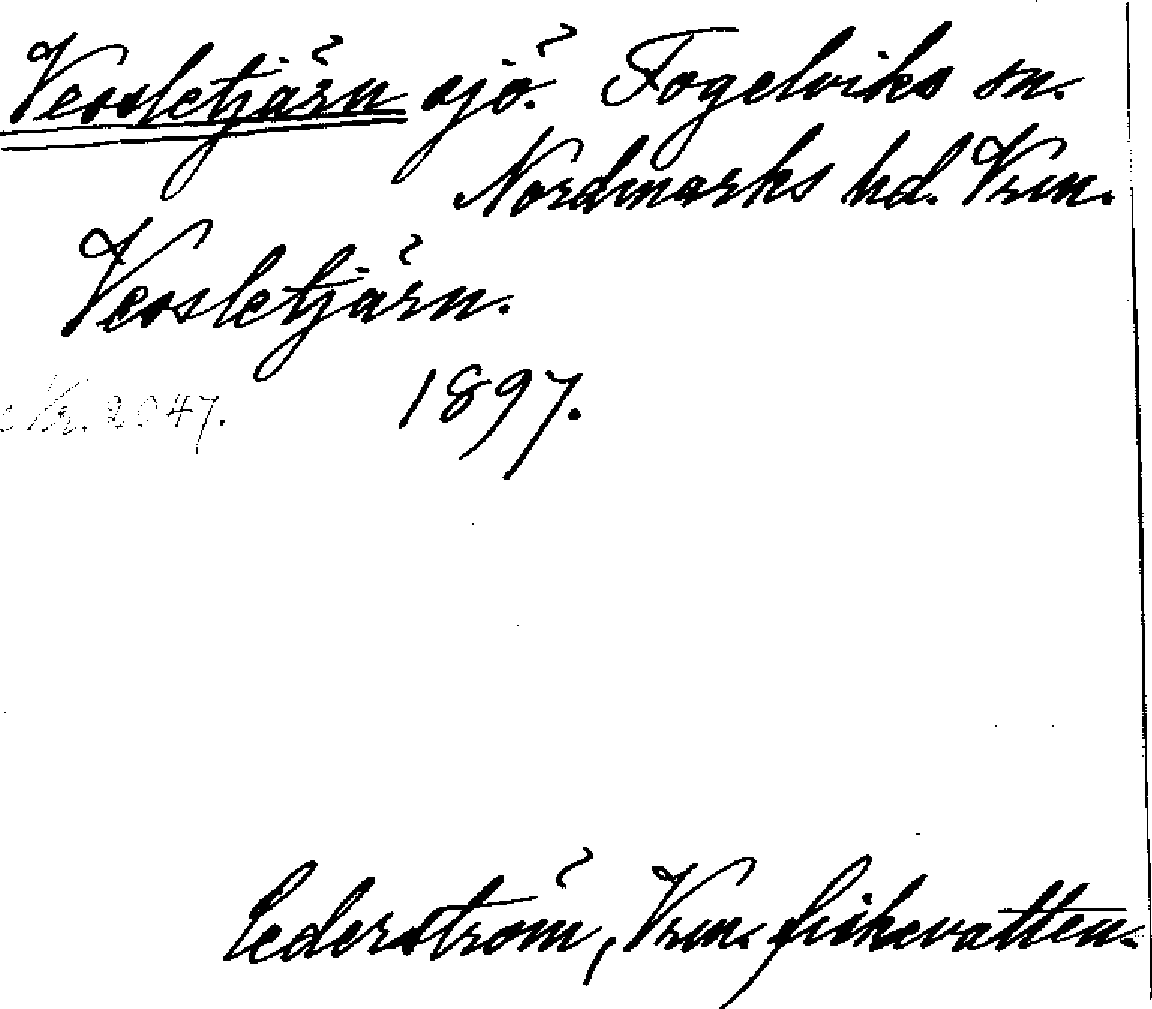 Veosletjärn sjö. Fogelviks sn.
Nordmarks hd. Vrm.
Veosletjärn.
1897.
2047.
Cederström, Vrm. fiskevatten.